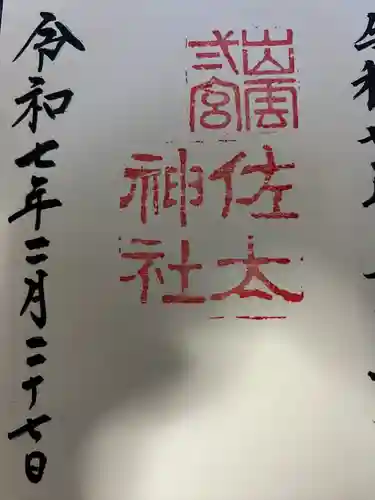 出雲
弐宮
佐太
神社
令和七年二月二十七日